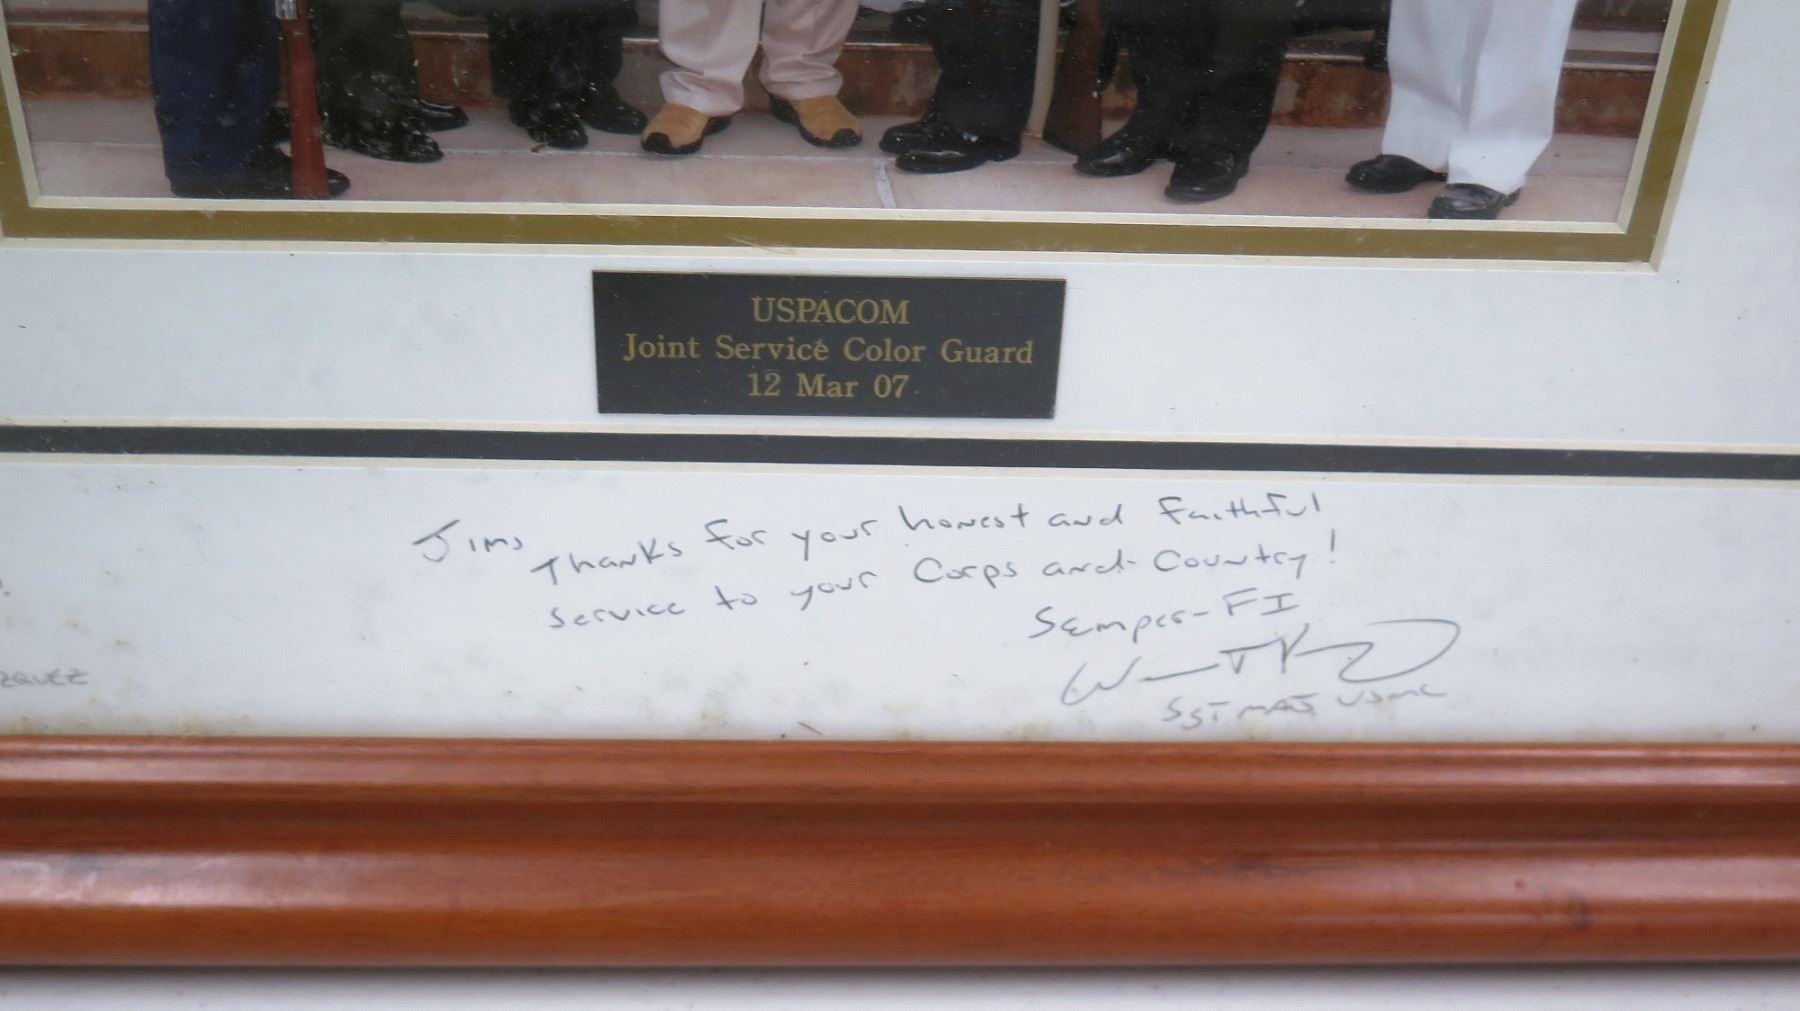 USPACOM
Joint Service Color Guard
12 Mar 07
Jim,
Thanks for your honest and Faithful
service to your Corps and Country!
Semper-FI
SGT MAJ USMC